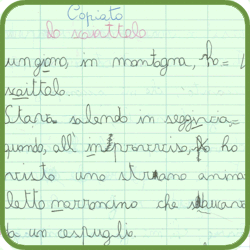 Copiato
Lo scoiattolo
un giorno, in montagna, ho
scoittolo.
Stavo salendo in seggiovia,
quando, all'improvviso, ho
visto uno strano anima
letto marroncino che
da un cespuglio.